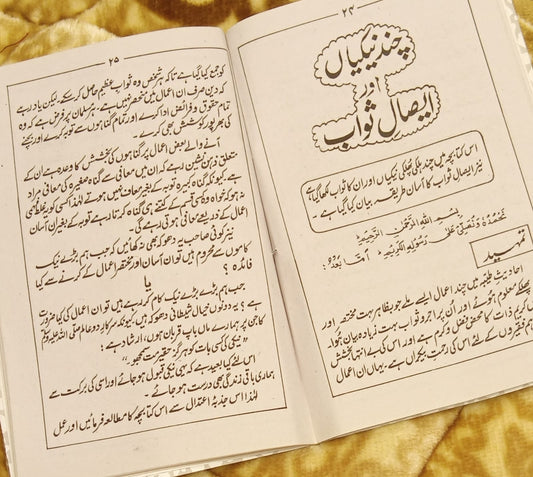 ۲۴
چند نیکیاں
اور
ایصال ثواب
اس کتابچہ میں چند ہلکی پھلکی نیکیاں اور ان کا ثواب لکھا گیا ہے
نیز ایصال ثواب کا آسان طریقہ بیان کیا گیا ہے۔
بِسْمِ اللّٰهِ الرَّحْمٰنِ الرَّحِيْمِ
نَحْمَدُهٗ وَنُصَلِّيْ عَلٰى رَسُوْلِهِ الْكَرِيْمِ، اَمَّا بَعْدُ:
تمہید
احادیث طیبہ میں چند اعمال ایسے ملے جو بظاہر بہت مختصر اور
پھلکے معلوم ہوئے اور اُن پر اجر و ثواب بہت زیادہ بیان ہوا۔
کریم ذات کا محض فضل و کرم ہے اور اس کی بے انتہا بخشش
فقیروں کے لئے اس کی رحمت بیکراں ہے۔ یہاں ان اعمال
۲۵
کو جمع کیا گیا ہے تاکہ ہر شخص وہ ثواب عظیم حاصل کر سکے۔ لیکن یاد رہے
کہ دین صرف ان اعمال میں منحصر نہیں ہے۔ ہر مسلمان پر فرض ہے کہ وہ
تمام حقوق و فرائض ادا کرے اور تمام گناہوں سے توبہ کرے اور بچنے
کی بھرپور کوشش بھی کرے۔
آنے والے بعض اعمال پر گناہوں کی بخشش کا وعدہ ہے ان کے
متعلق ذہن نشین رہے کہ ان میں معافی سے گناہ صغیرہ کی معافی مراد
ہے۔ کیونکہ گناہ کبیرہ توبہ کے بغیر معاف نہیں ہوتے لہٰذا کسی کو یہ غلط فہمی
نہ ہو کہ خواہ وہ کسی قسم کے کتنے ہی گناہ کرتا رہے توبہ کے بغیر ان آسان
اعمال کے ذریعے معافی ہوتی رہے گی۔
نیز کوئی صاحب یہ دھوکہ بھی نہ کھائیں کہ جب ہم بڑے نیک
کاموں سے محروم ہیں تو ان آسان اور مختصر اعمال کے کرنے سے کیا
فائدہ؟
یا
جب ہم بڑے بڑے نیک کام کر رہے ہیں تو ان اعمال کی کیا ضرورت
ہے؟ یہ دونوں خیال شیطانی دھوکہ ہیں، کیونکہ سرکار دو عالم صلی اللہ علیہ وسلم
کا جن پر ہمارے ماں باپ قربان ہوں، ارشاد ہے:
"نیکی کی کسی بات کو ہرگز حقیر مت سمجھو۔"
اس لئے کیا بعید ہے کہ یہی نیکی قبول ہو جائے اور اسی کی برکت سے
ہماری باقی زندگی بھی درست ہو جائے۔
لہٰذا اس جذبۂ اعتدال سے اس کتابچہ کا مطالعہ فرمائیں اور عمل